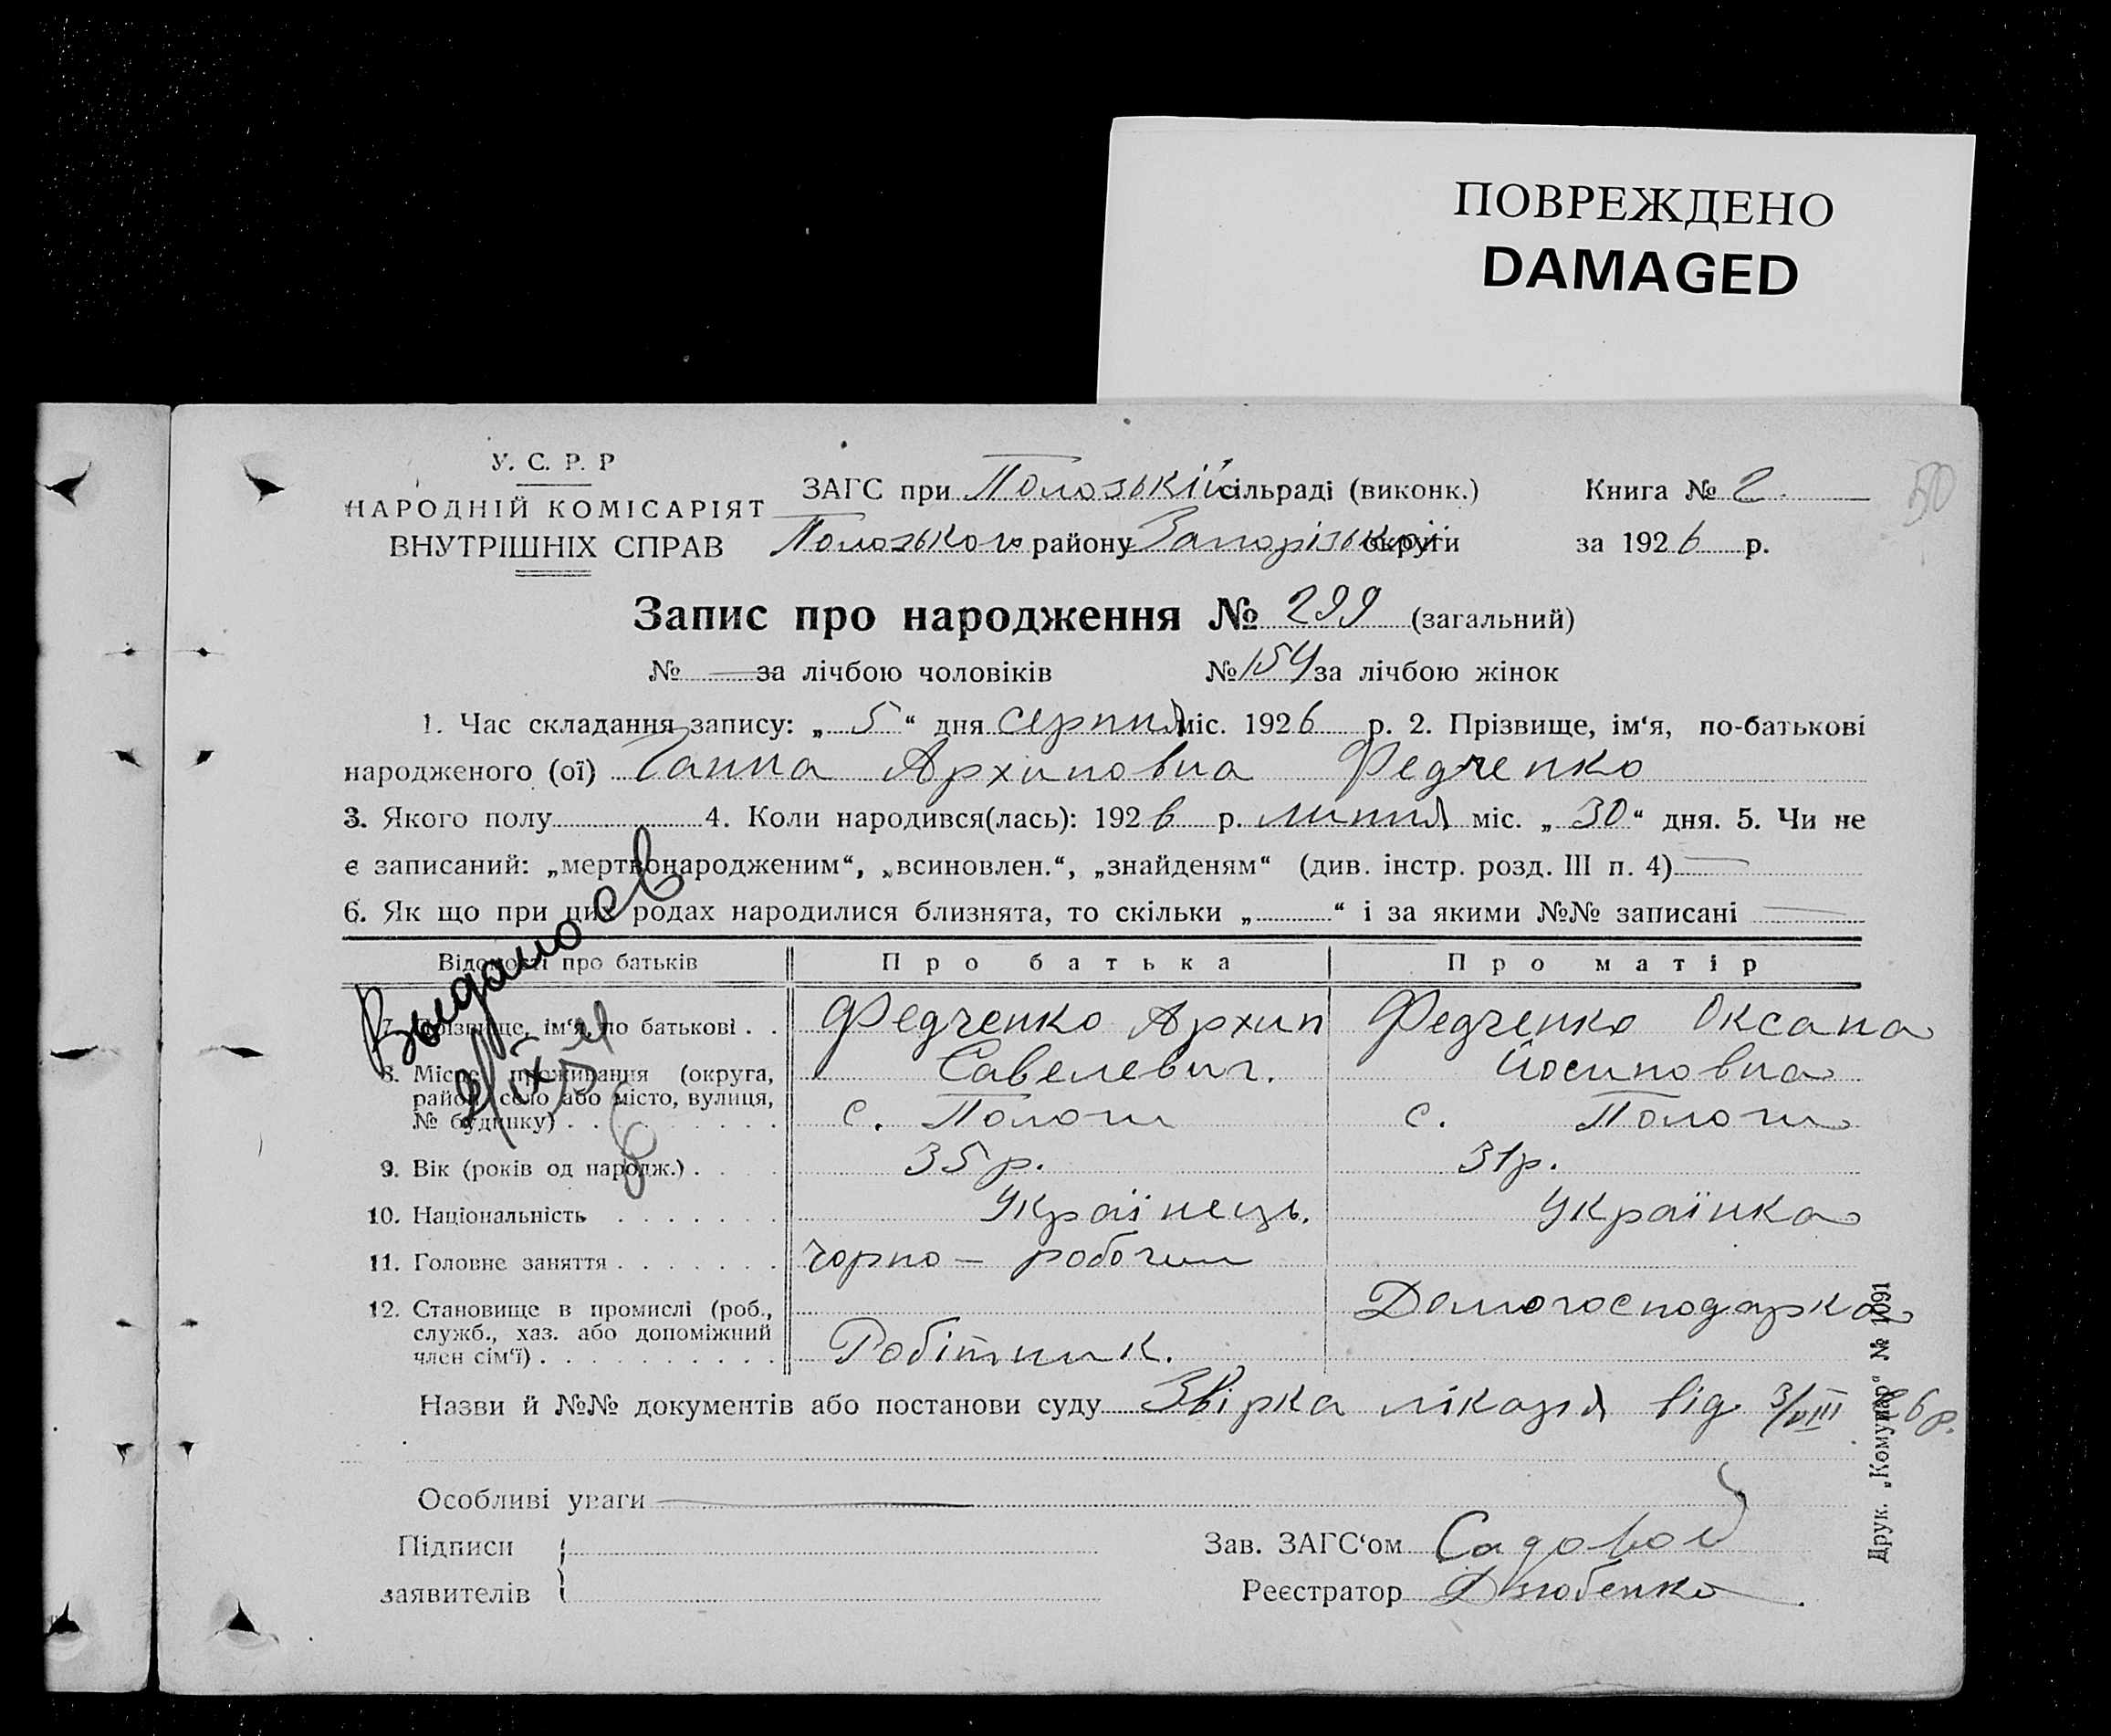 ПОВРЕЖДЕНО
DAMAGED
50
У. С. Р. Р
НАРОДНІЙ КОМІСАРІЯТ
ВНУТРІШНІХ СПРАВ
ЗАГС при Пологській сільраді (виконк.)
Книга № 2.
Пологського району Запорізької округи
за 1926 р.
Запис про народження № 299 (загальний)
№ — за лічбою чоловіків № 154 за лічбою жінок
1. Час складання запису: „ 5 “ дня серпня міс. 1926 р. 2. Прізвище, ім‘я, по-батькові
народженого (ої) Ганна Архиповна Федченко
3. Якого полу 4. Коли народився(лась): 1926 р. липня міс. „ 30 “ дня. 5. Чи не
є записаний: „мертвонародженим“, „всиновлен.“, „знайденям“ (див. інстр. розд. III п. 4) —
6. Як що при цих родах народилися близнята, то скільки „ “ і за якими №№ записані —
Відомості про батьків
Про батька
Про матір
Выдано св
7. Прізвище, ім‘я, по батькові . .
Федченко Архип
Савелевич.
Федченко Оксана
Йосиповна
8. Місце проживання (округа,
район, село або місто, вулиця,
№ будинку) . .
с. Пологи
с. Пологи
9. Вік (років од народж.) .
35 р.
31 р.
10. Національність
Українець.
Українка
11. Головне заняття
чорно — робочии
12. Становище в промислі (роб.,
служб., хаз. або допоміжний
член сім‘ї) .
Робітник.
Домогосподарка
Назви й №№ документів або постанови суду Звірка лікаря від 3/VIII 26 р.
Особливі уваги —
Підписи
заявителів
Зав. ЗАГС‘ом Садовой
Реєстратор Дзюбенко.
Друк. „Комунар“ № 1091